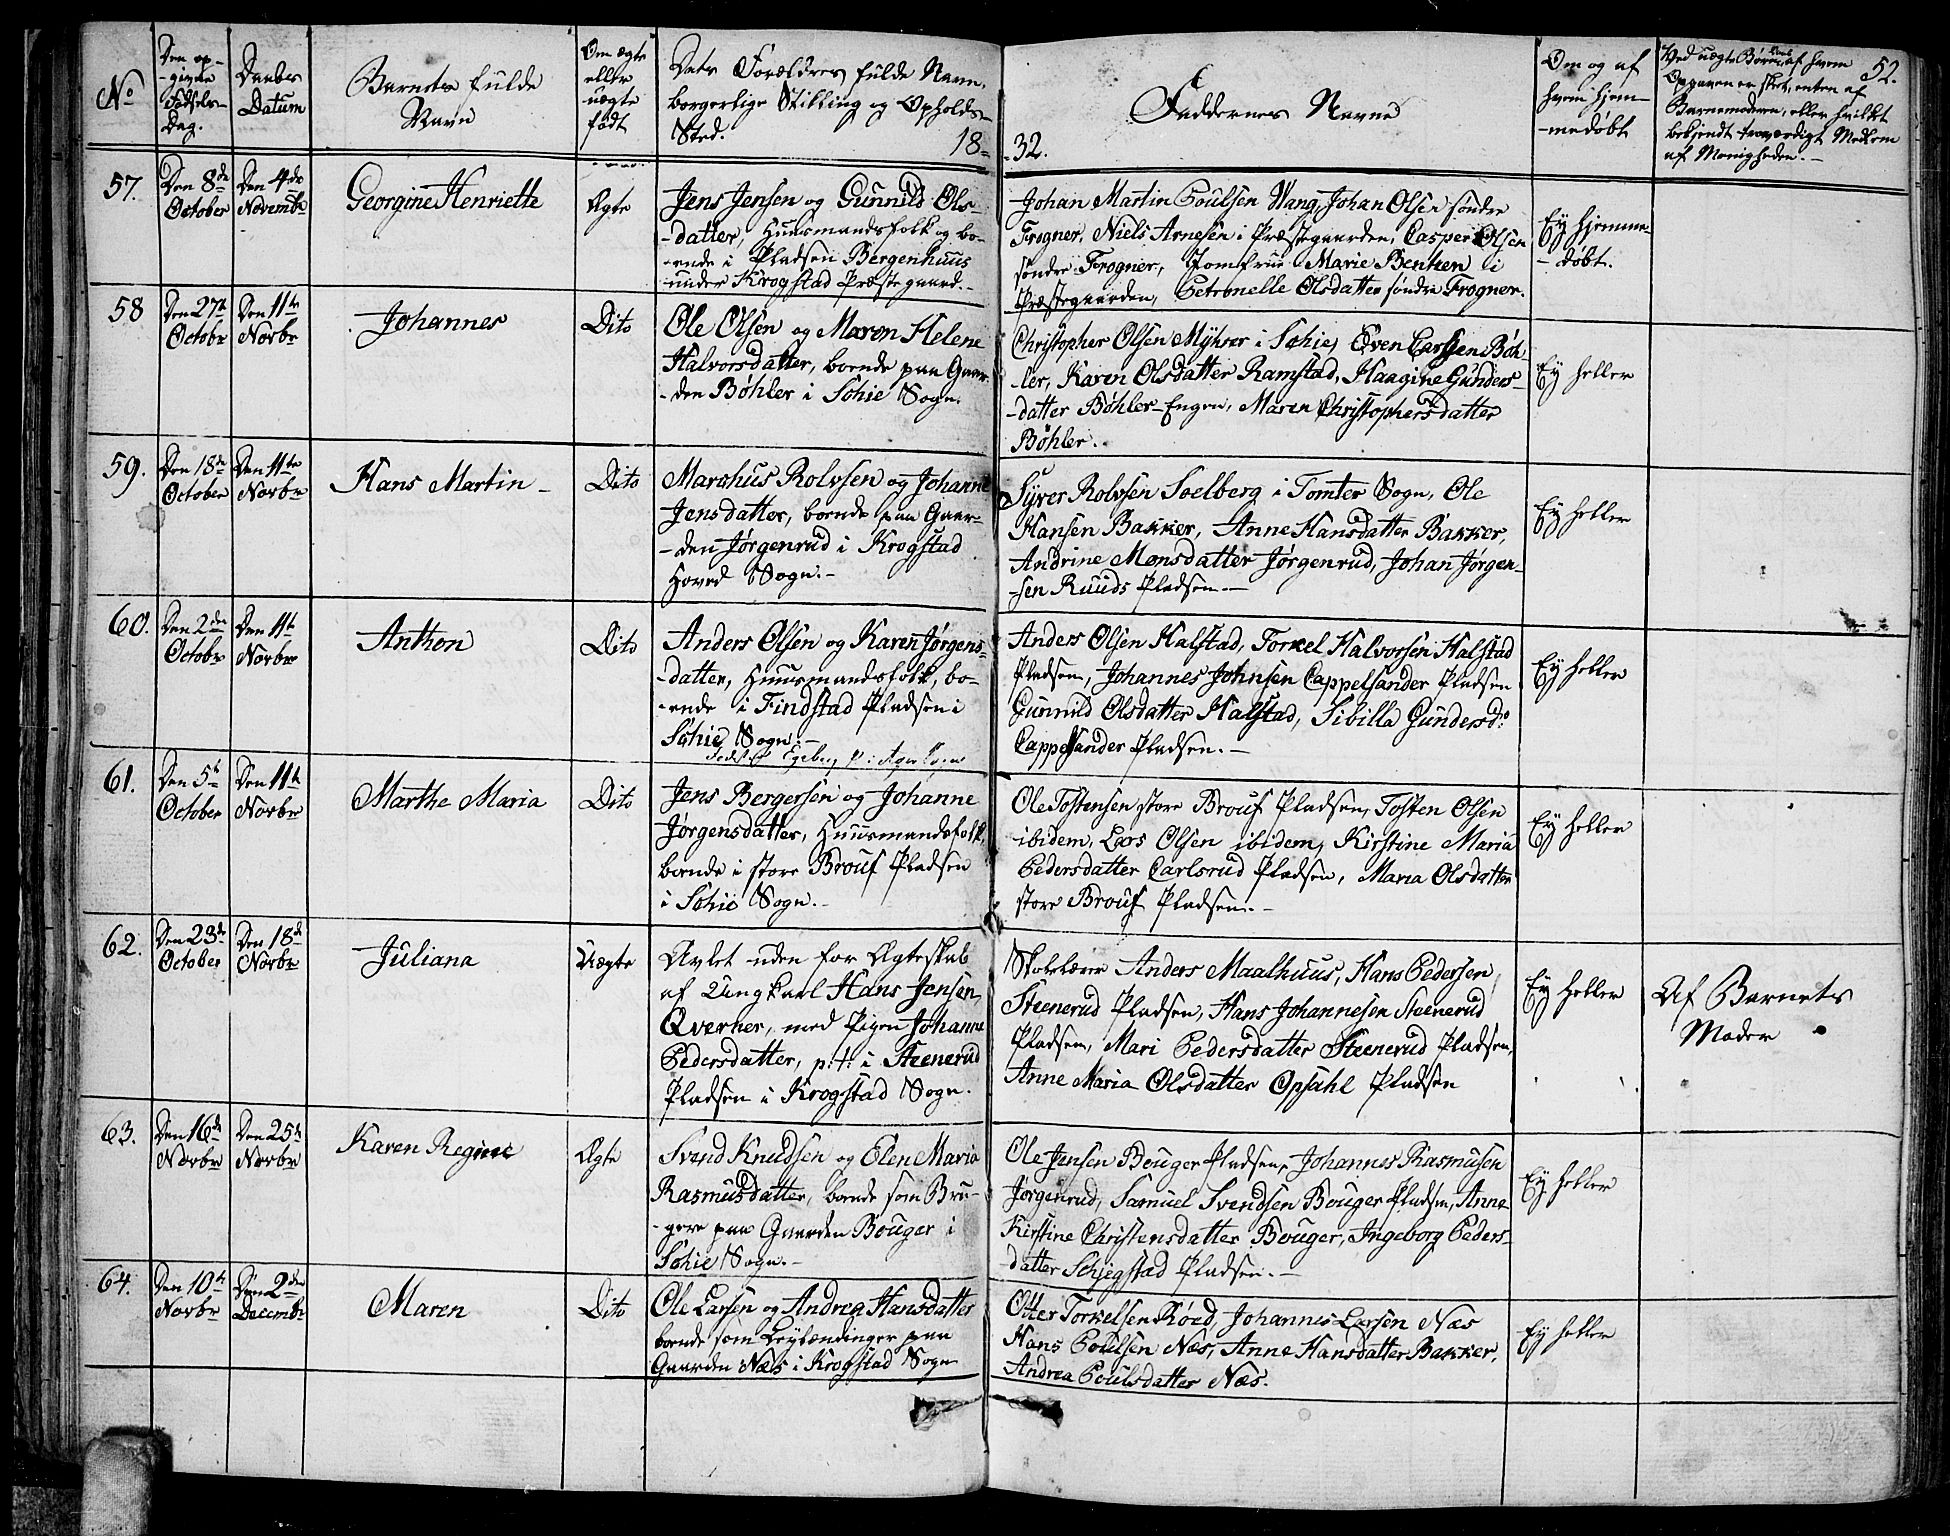 No
Den op-
-givne
Fødsels-
Dag.
Daabs
Datum
Barnets fulde
Navn
Om ægte
eller
uægte
født
Dets Forældres fulde Navn,
borgerlige Stilling og Opholds-
Sted.
18-
-32.
Faddernes Navne
Om og af
hvem hjem-
-medøbt
Ved uægte Børn, af hvem
Opgaven er skeet, enten af
Barnemoderen, eller hvilket
bekjendt troværdigt Medlem
af Menigheden.-
52.
57.
Den 8de
October
Den 4de
Novembr
Georgine Henriette
Ægte
Jens Jensen og Gunnild Ols-
-datter, Huusmandsfolk og bo-
-ende i Pladsen Bergenhuus
under Krogstad Præstegaard.-
Johan Martin Poulsen Wang, Johan Olsen søndre
Frogner, Niels Arnesen i Præstegaarden, Casper Olsen
søndre Frogner, Jomfrue Marie Bentzen i
Præstegaarden, Petronelle Olsdatter søndre Frogner.
Ey hjemme-
-døbt.
58
Den 27de
Octobr
Den 11te
Novbr
Johannes
Dito
Ole Olsen og Maren Helene
Halvorsdatter, boende paa Gaar-
-den Bøhler i Sohie Sogn.
Christopher Olsen Myhrer i Sohie, Even Carlsen Bøh-
-ler, Karen Olsdatter Ramstad, Haagine Gunders-
-datter Bøhler-Engen, Maren Christophersdatter
Bøhler.
Ey heller
59.
Den 18de
October
Den 11te
Novbr
Hans Martin
Dito
Marchus Rolvsen og Johanne
Jensdatter, boende paa Gaar-
-den Jørgenrud i Krogstad
Hoved Sogn.-
Syver Rolvsen Soelberg i Tomter Sogn, Ole
Hansen Bakker, Anne Hansdatter Bakker,
Andrine Monsdatter Jørgenrud, Johan Jørgen-
-sen Ruuds Pladsen.-
Ey heller
60.
Den 2den
Octobr
Den 11te
Novbr
Anthon
Dito
Anders Olsen og Karen Jørgens-
-datter, Huusmandsfolk, bo-
-ende i Findstad Pladsen i
Sohie Sogn.-
Anders Olsen Halstad, Torkel Halvorsen Halstad
Pladsen, Johannes Johnsen Cappelsander Pladsen
Gunnild Olsdatter Halstad, Sibilla Gundersdr
Cappelsander Pladsen.-
Ey heller
61.
Den 5te
October
Den 11te
Novbr
Marthe Maria
Dito
Jens Bergersen og Johanne
Jørgensdatter, Huusmandsfolk,
boende i store Brouf Pladsen
i Sohie Sogn.-
Ole Tostensen store Brouf Pladsen, Tosten Olsen
ibidem, Lars Olsen ibidem, Kirstine Maria
Pedersdatter Carlsrud Pladsen, Maria Olsdatter
store Brouf Pladsen.-
Ey heller
62.
Den 23de
October
Den 18de
Novbr
Juliana
Uægte
Avlet uden for Ægteskab
af Ungkarl Hans Jensen
Qverner, med Pigen Johanne
Pedersdatter, p:t: i Steenerud
Pladsen i Krogstad Sogn.
Skolelærer Anders Maalhuus, Hans Pedersen
Steenerud Pladsen, Hans Johannesen Steenerud
Pladsen, Mari Pedersdatter Steenerud Pladsen,
Anne Maria Olsdatter Opsahl Pladsen
Ey heller
Af Barnets
Moder
63.
Den 16de
Novbr
Den 25te
Novbr
Karen Regine
Ægte
Svend Knudsen og Elen Maria
Rasmusdatter, boende som Bru-
-gere paa Gaarden Bouger i
Sohie Sogn.-
Ole Jensen Bouger Pladsen, Johannes Rasmusen
Jørgenrud, Samuel Svendsen Bouger Pladsen, Anne
Kirstine Christensdatter Bouger, Ingeborg Peders-
-datter Schjegstad Pladsen.-
Ey heller
64.
Den 10de
Novbr
Den 2den
Decembr
Maren
Dito
Ole Larsen og Andrea Hansdatter
boende som Leylændinger paa
Gaarden Næs i Krogstad Sogn
Otter Torkelsen Røed, Johannes Larsen Næs
Hans Poulsen Næs, Anne Hansdatter Bakker,
Andrea Poulsdatter Næs.
Ey heller